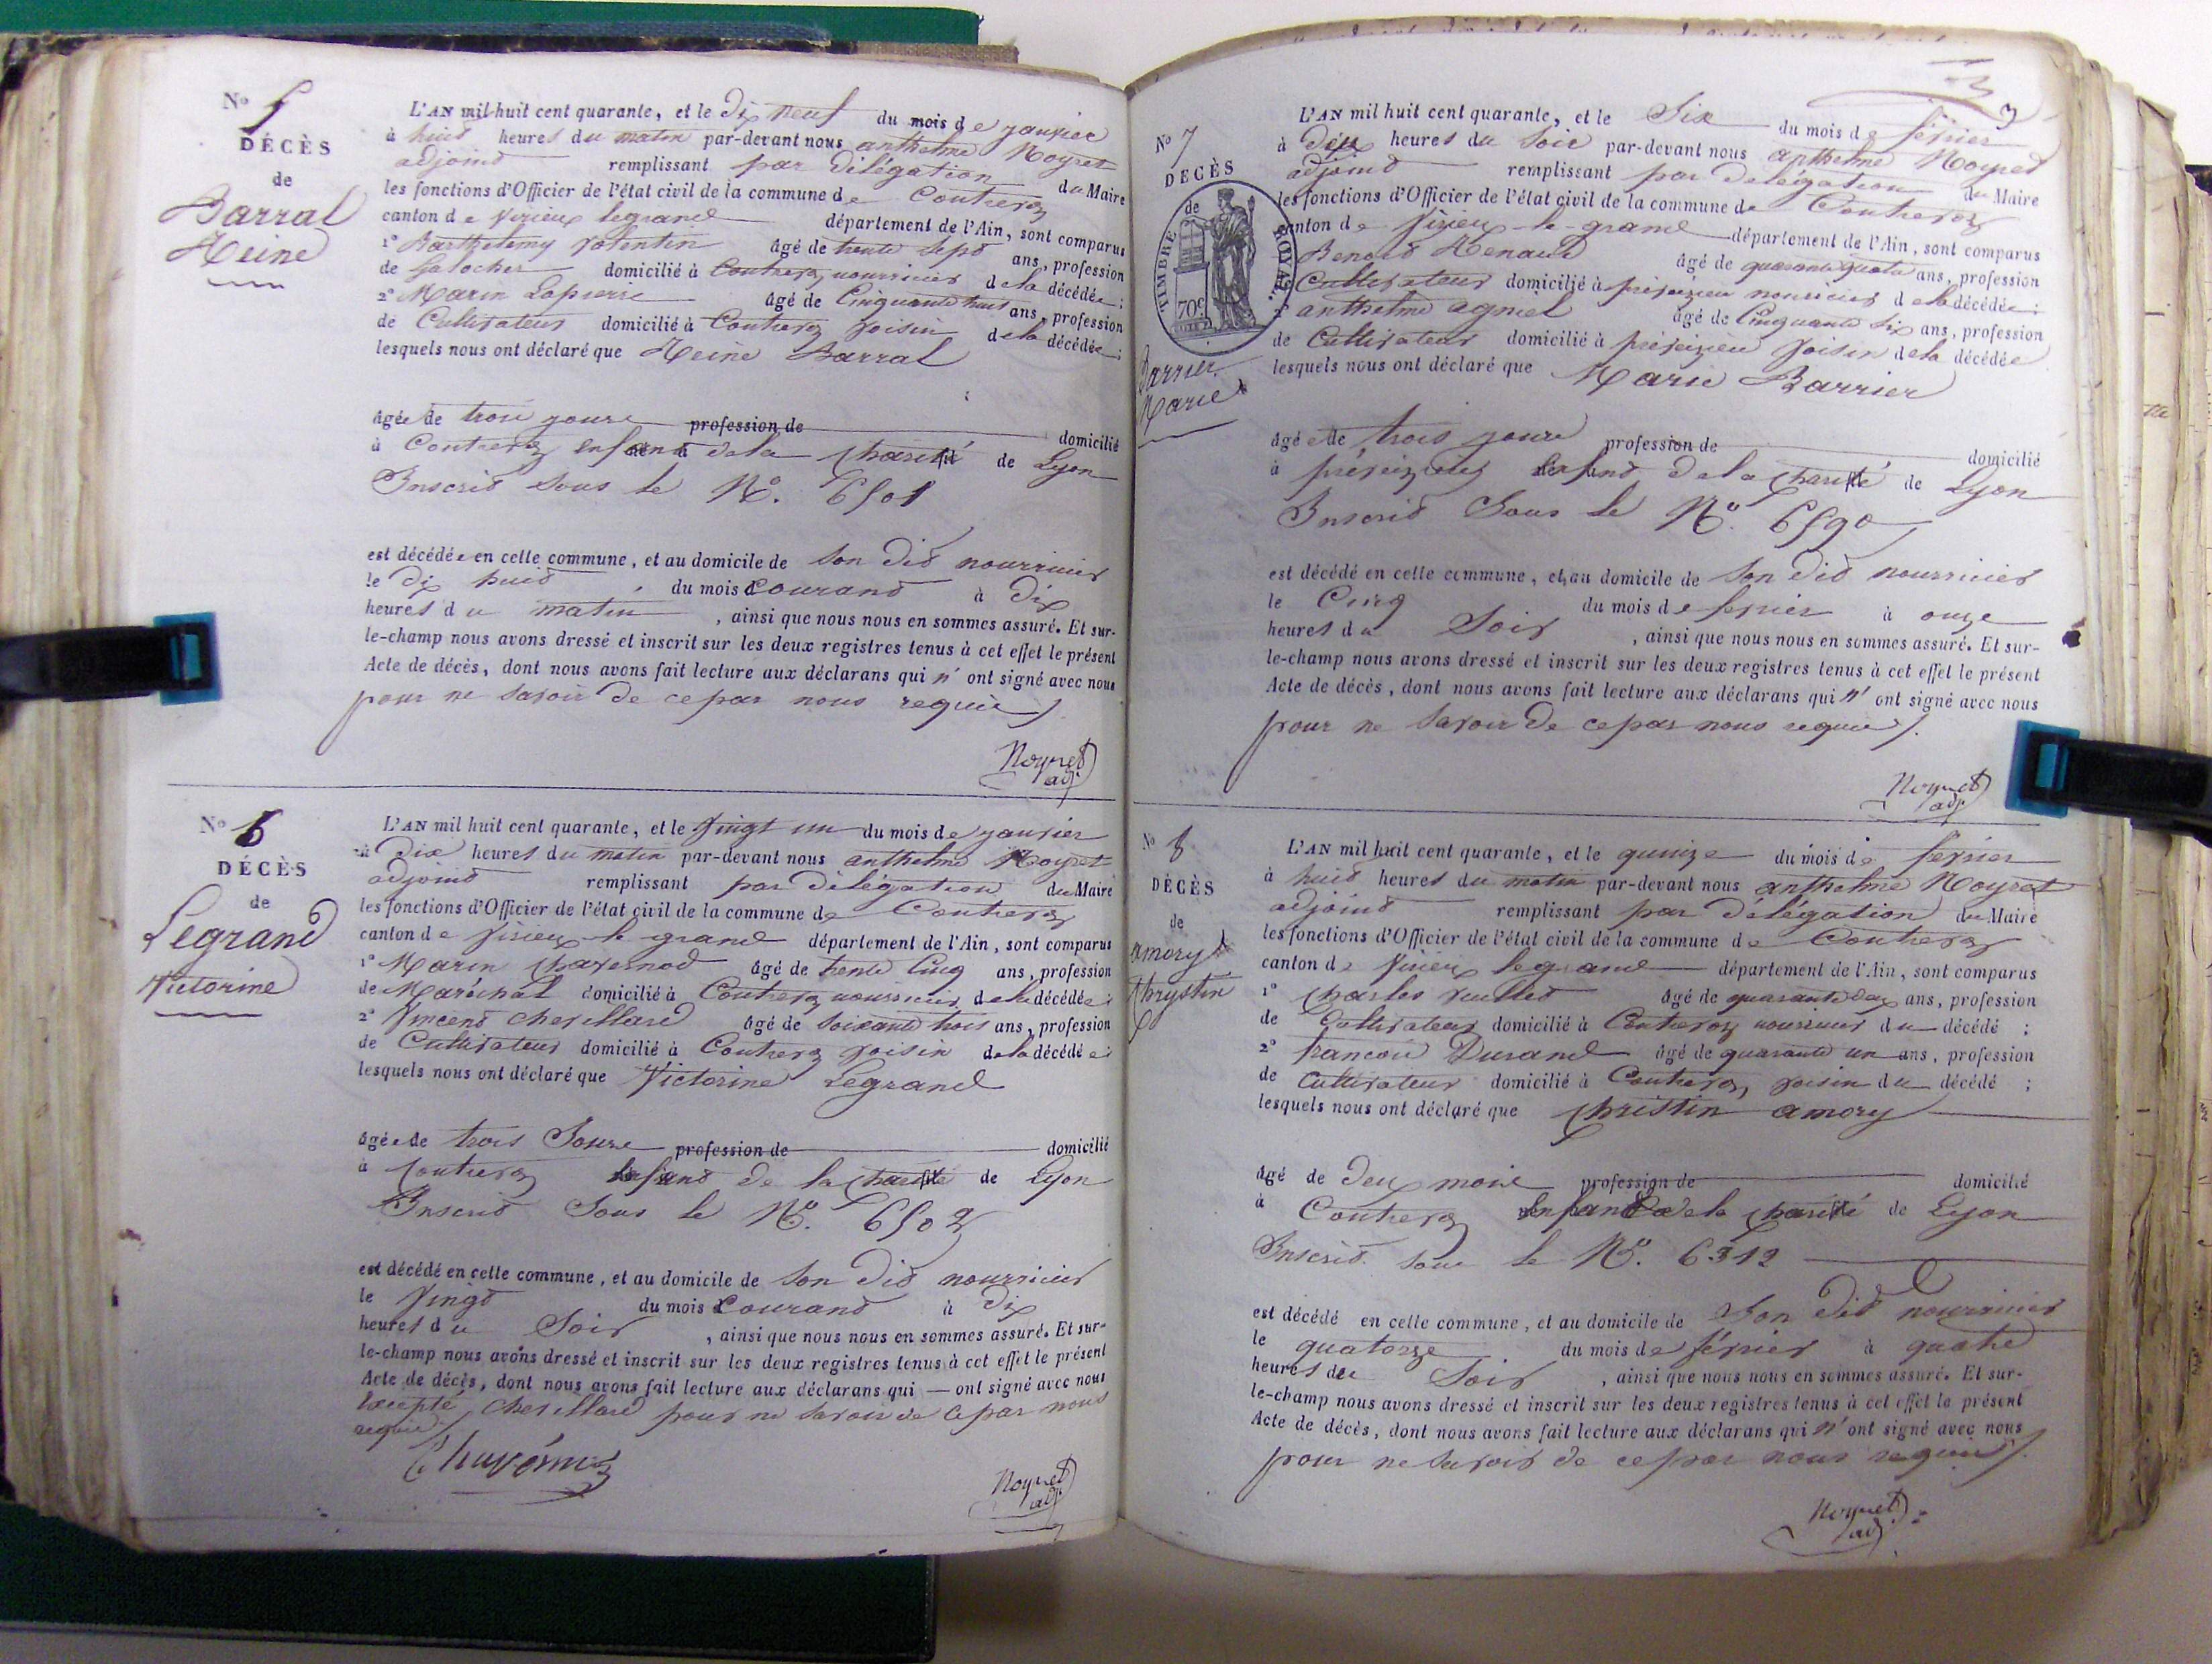 No 5
DÉCÈS
de
Barral
Reine
L'AN mil-huit cent quarante, et le dix neuf du mois de janvier
à huit heures du matin par-devant nous anthelme Noyret
adjoint remplissant par délégation du Maire
les fonctions d'Officier de l'état civil de la commune de Contrevoz
canton de Virieux legrand département de l'Ain, sont comparus
1° Barthelemy Volentin âgé de trente sept ans, profession
de Galocher domicilié à Contrevoz nourricier de la décédée ;
2° Marin Lapierre âgé de Cinquante huit ans, profession
de Cultivateur domicilié à Contrevoz voisin de la décédée ;
lesquels nous ont déclaré que Reine Barral
âgée de trois jours profession de domicilié
à Contrevoz enfant de la charité de Lyon
Inscrit sous le No. 6501
est décédée en celle commune, et au domicile de son dit nourricier
le dix huit du mois courant à dix
heures du matin , ainsi que nous nous en sommes assuré. Et sur-
le-champ nous avons dressé et inscrit sur les deux registres tenus à cet effet le présent
Acte de décès, dont nous avons fait lecture aux déclarans qui n' ont signé avec nous
pour ne savoir de ce par nous requis ./.
Noyret
adj.
No 6
DÉCÈS
de
Legrand
Victorine
L'AN mil huit cent quarante, et le vingt un du mois de janvier
à dix heures du matin par-devant nous anthelme Noyret
adjoint remplissant par délégation du Maire
les fonctions d'Officier de l'état civil de la commune de Contrevoz
canton de Virieux le grand département de l'Ain, sont comparus
1° Marin Chavernod âgé de trente Cinq ans, profession
de Maréchal domicilié à Contrevoz nourricier de la décédée ;
2° Vincent Chevillard âgé de soixante trois ans, profession
de Cultivateur domicilié à Contrevoz voisin de la décédée ;
lesquels nous ont déclaré que Victorine Legrand
âgée de trois Jours profession de domicilié
à Contrevoz enfant de la charité de Lyon
Inscrit Sous le No. 6502
est décédé en celle commune, et au domicile de son dit nourricier
le vingt du mois courant à dix
heures du Soir , ainsi que nous nous en sommes assuré. Et sur-
le-champ nous avons dressé et inscrit sur les deux registres tenus à cet effet le présent
Acte de décès, dont nous avons fait lecture aux déclarans qui — ont signé avec nous
excepté Chevillard pour ne savoir de ce par nous
requis ./.
Noyret
adj.
3
No 7
DÉCÈS
de
TIMBRE ROYAL.
70c
Barrier
Marie
L'AN mil huit cent quarante, et le Six du mois de février
à heures du soir par-devant nous anthelme Noyret
adjoint remplissant par délégation du Maire
les fonctions d'Officier de l'état civil de la commune de Contrevoz
canton de Virieux-le-grand département de l'Ain, sont comparus
Benoit Renaud âgé de quarante quatre ans, profession
Cultivateur domicilié à preveizieu nourricier de la décédée ;
2° anthelme agniel âgé de Cinquante six ans, profession
de Cultivateur domicilié à preveizieu voisin de la décédée
lesquels nous ont déclaré que Marie Barrier
âgée de trois jours profession de domicilié
à enfant de la charité de Lyon
Inscrit Sous le No. 6590
est décédé en celle commune, et au domicile de son dit nourricier
le Cinq du mois de fevrier à onze
heures du Soir , ainsi que nous nous en sommes assuré. Et sur-
le-champ nous avons dressé et inscrit sur les deux registres tenus à cet effet le présent
Acte de décès, dont nous avons fait lecture aux déclarans qui n' ont signé avec nous
pour ne savoir de ce par nous requis ./.
Noyret
adj.
No 8
DÉCÈS
de
amory
Chrystin
L'AN mil huit cent quarante, et le quinze du mois de fevrier
à huit heures du matin par-devant nous anthelme Noyret
adjoint remplissant par délégation du Maire
les fonctions d'Officier de l'état civil de la commune de Contrevoz
canton de Virieux legrand département de l'Ain, sont comparus
1° Charles Vuillod âgé de quarante deux ans, profession
de Cultivateur domicilié à Contrevoz nourricier du décédé ;
2° francois Durand âgé de quarante un ans, profession
de Cultivateur domicilié à Contrevoz, voisin du décédé ;
lesquels nous ont déclaré que Christin amory
âgé de deux mois profession de domicilié
à Contrevoz enfant de la charité de Lyon
Inscrit sous le No. 6312
est décédé en celle commune, et au domicile de son dit nourricier
le quatorze du mois de février à quatre
heures du Soir , ainsi que nous nous en sommes assuré. Et sur-
le-champ nous avons dressé et inscrit sur les deux registres tenus à cet effet le présent
Acte de décès, dont nous avons fait lecture aux déclarans qui n' ont signé avec nous
pour ne savoir de ce par nous requis ./.
Noyret
adj